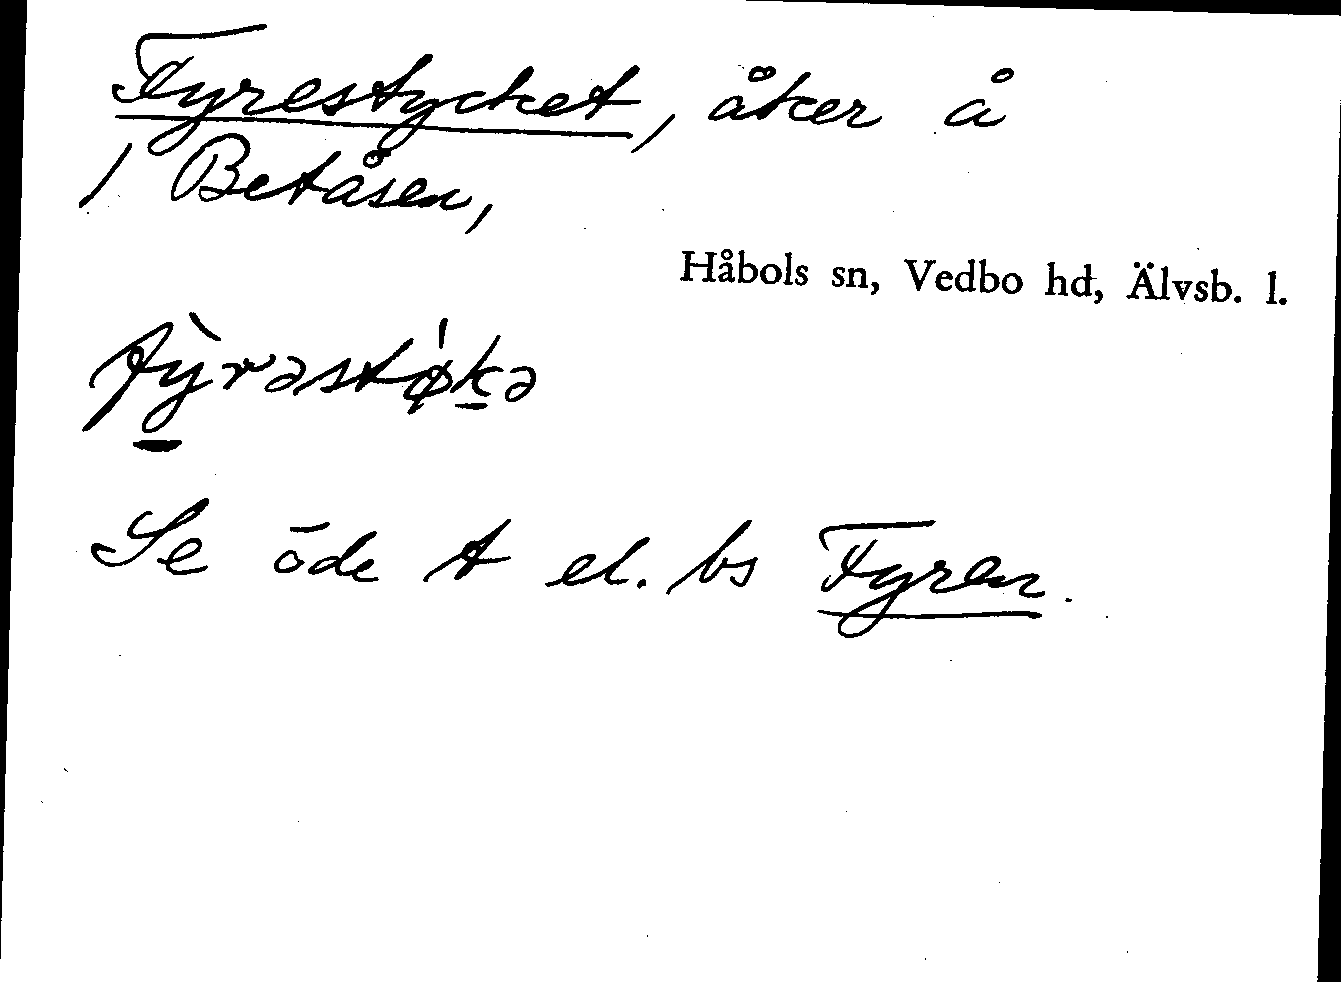 Fyrestycket, åker å
1 Betåsen,
Håbols sn, Vedbo hd, Älvsb. l.
fỳ̠rəstø̍k̠ə
Se öde t el. bs Fyren.